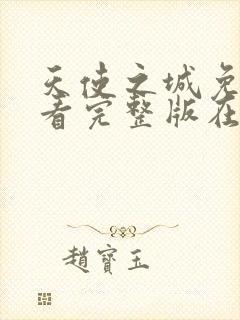 天使之城免
看完整版在
趙寶玉